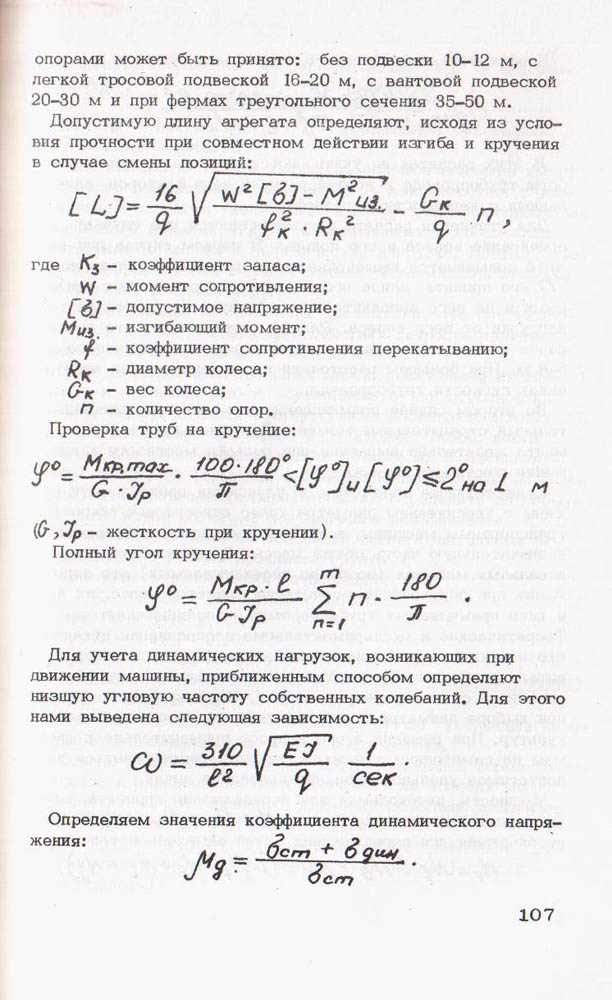 опорами может быть принято: без подвески 10–12 м, с
легкой тросовой подвеской 16–20 м, с вантовой подвеской
20–30 м и при фермах треугольного сечения 35–50 м.
Допустимую длину агрегата определяют, исходя из усло-
вия прочности при совместном действии изгиба и кручения
в случае смены позиций:
[L] = 16/q √((W² [б] – M² из.)/(f²к · Rк²)) – Gк/q n ,
где Kз – коэффициент запаса;
W – момент сопротивления;
[б] – допустимое напряжение;
Миз. – изгибающий момент;
f – коэффициент сопротивления перекатыванию;
Rк – диаметр колеса;
Gк – вес колеса;
n – количество опор.
Проверка труб на кручение:
φ° = Мкр.max/(G · Jp) · 100·180°/П < [φ°] и [φ°] ≤ 2° на l м
(G, Jp – жесткость при кручении).
Полный угол кручения:
φ° = Мкр · l/(G Jp) m Σ n=1 n · 180/П .
Для учета динамических нагрузок, возникающих при
движении машины, приближенным способом определяют
низшую угловую частоту собственных колебаний. Для этого
нами выведена следующая зависимость:
ω = 310/l² √(EJ/q) 1/сек
Определяем значения коэффициента динамического напря-
жения:
μg = (бст + бдин)/бст .
107